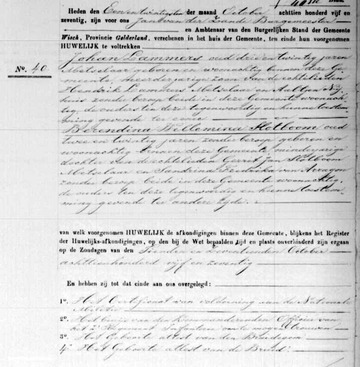 Heden den Een en twintigsten der maand October achttien honderd vijf en
zeventig, zijn voor ons
en Ambtenaar van den Burgerlijken Stand der Gemeente
Wisch, Provincie Gelderland, verschenen in het huis der Gemeente, ten einde hun voorgenomen
HUWELIJK te voltrekken
No. 40.
Johan Lammers oud drie en twintig jaren
Metselaar geboren en woonachtig binnen deze Ge
meente, meerderjarige zoon van de echtelieden
Hendrik Lammers Metselaar en
zonder beroep beide in deze Gemeente woonach
tig, de ouders ten deze tegenwoordig en hunne toestem
ming gevende ter eenre
Berendina Willemina Slotboom oud
twee en twintig jaren zonder beroep geboren en
woonachtig binnen deze Gemeente minderjarige
dochter van de echtelieden Gerrit Jan Slotboom
Metselaar en Hendrika van Aragon
zonder beroep beide in deze Gemeente woonachtig
de ouders ten deze tegenwoordig en hunne toestem
ming gevende ter andere zijde
van welk voorgenomen HUWELIJK de afkondigingen binnen deze Gemeente, blijkens het Register
der Huwelijks-afkondigingen, op den bij de Wet bepaalden tijd en plaats onverhinderd zijn ergaan
op de Zondagen den en zeventienden October
achttienhonderd vijf en zeventig
En hebben zij tot dat einde aan ons overgelegd:
1o. Het Certificaat van voldoening aan de Nationale
Militie
2o. Het bewijs van den Kommanderenden Officier van
het Regement Infanterie om te mogen trouwen
3o. Het Geboorte attest van den Bruidegom
4o. Het Geboorte attest van de Bruid